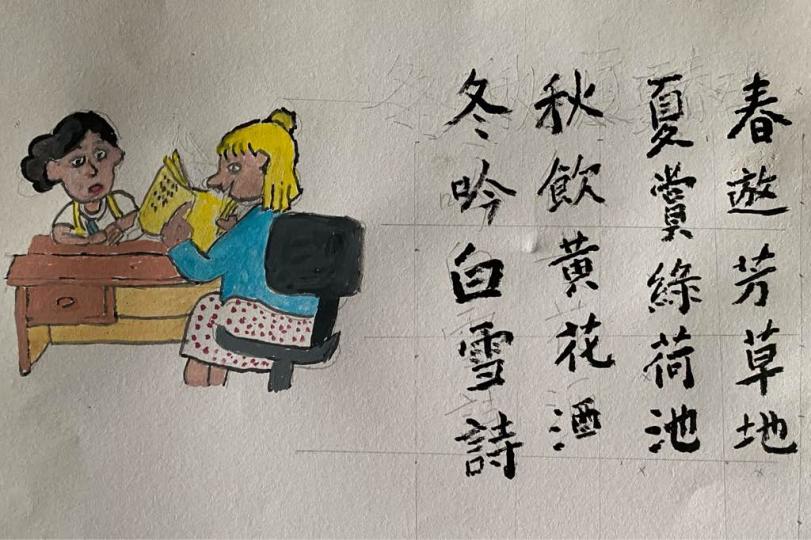 春遊芳草地
夏賞綠荷池
秋飲黃花酒
冬吟白雪詩